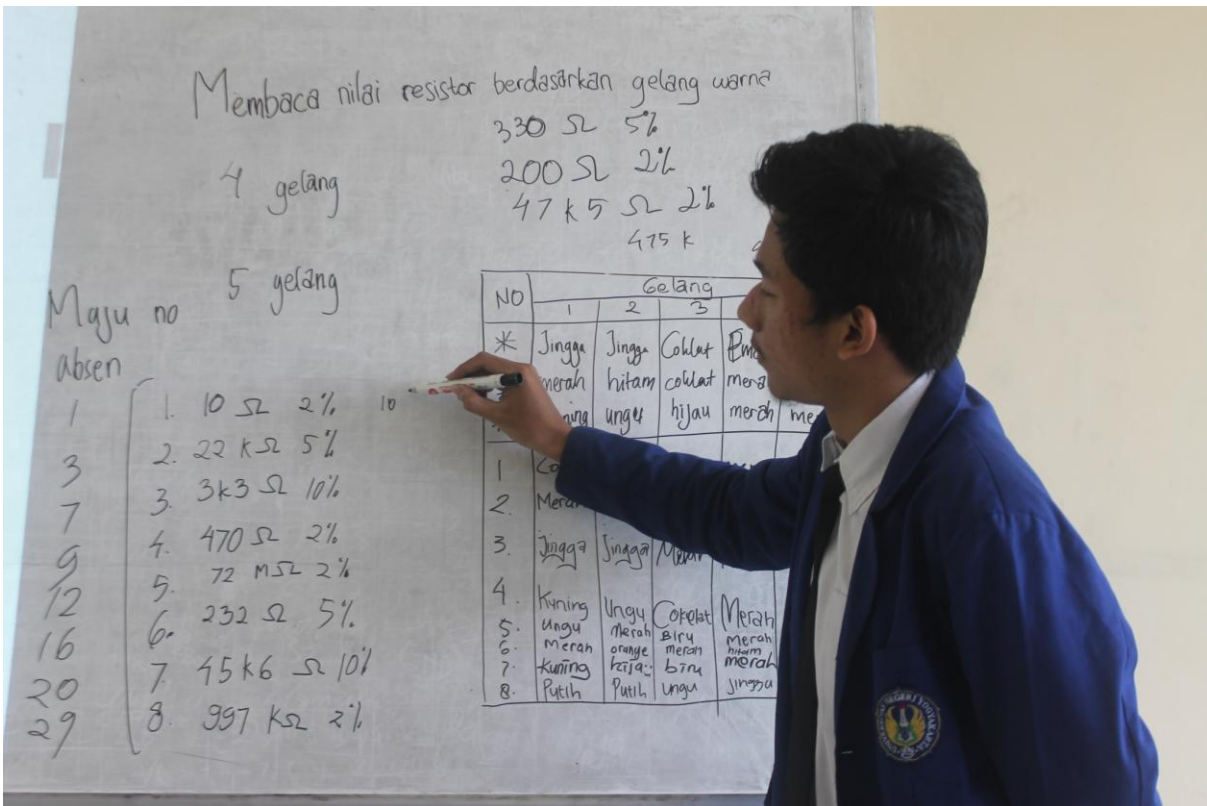 Membaca nilai resistor berdasarkan gelang warna
330 Ω 5%
200 Ω 2%
47 k 5 Ω 2%
475 k
4 gelang
5 gelang
Maju no
absen
1
3
7
9
12
16
20
29
1. 10 Ω 2% 10
2. 22 KΩ 5%
3. 3k3 Ω 10%
4. 470 Ω 2%
5. 72 MΩ 2%
6. 232 Ω 5%
7. 45k6 Ω 10%
8. 997 KΩ 2%
NO Gelang
1 2 3
* Jingga Jingga Coklat
merah hitam coklat
ungu hijau merah
1
2. Merah
3. Jingga Jingga Merah
4. Kuning Ungu Cokelat Merah
5. Ungu Merah Biru Merah
6. Merah orange merah hitam
7. Kuning hijau biru merah
8. Putih Putih ungu Jingga